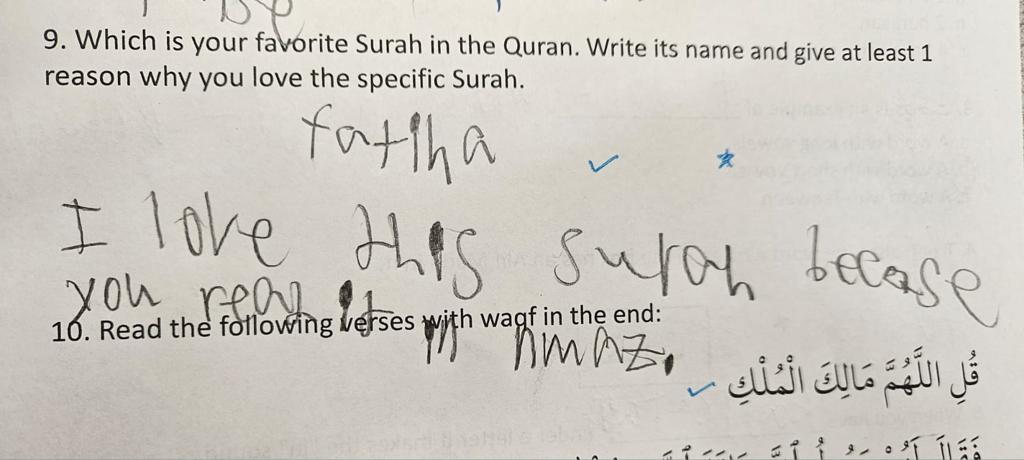 9. Which is your favorite Surah in the Quran. Write its name and give at least 1
reason why you love the specific Surah.
fatiha
I love this surah becase
you read it in nmaz.
10. Read the following verses with waqf in the end:
قُلِ اللَّهُمَّ مَالِكَ الْمُلْكِ